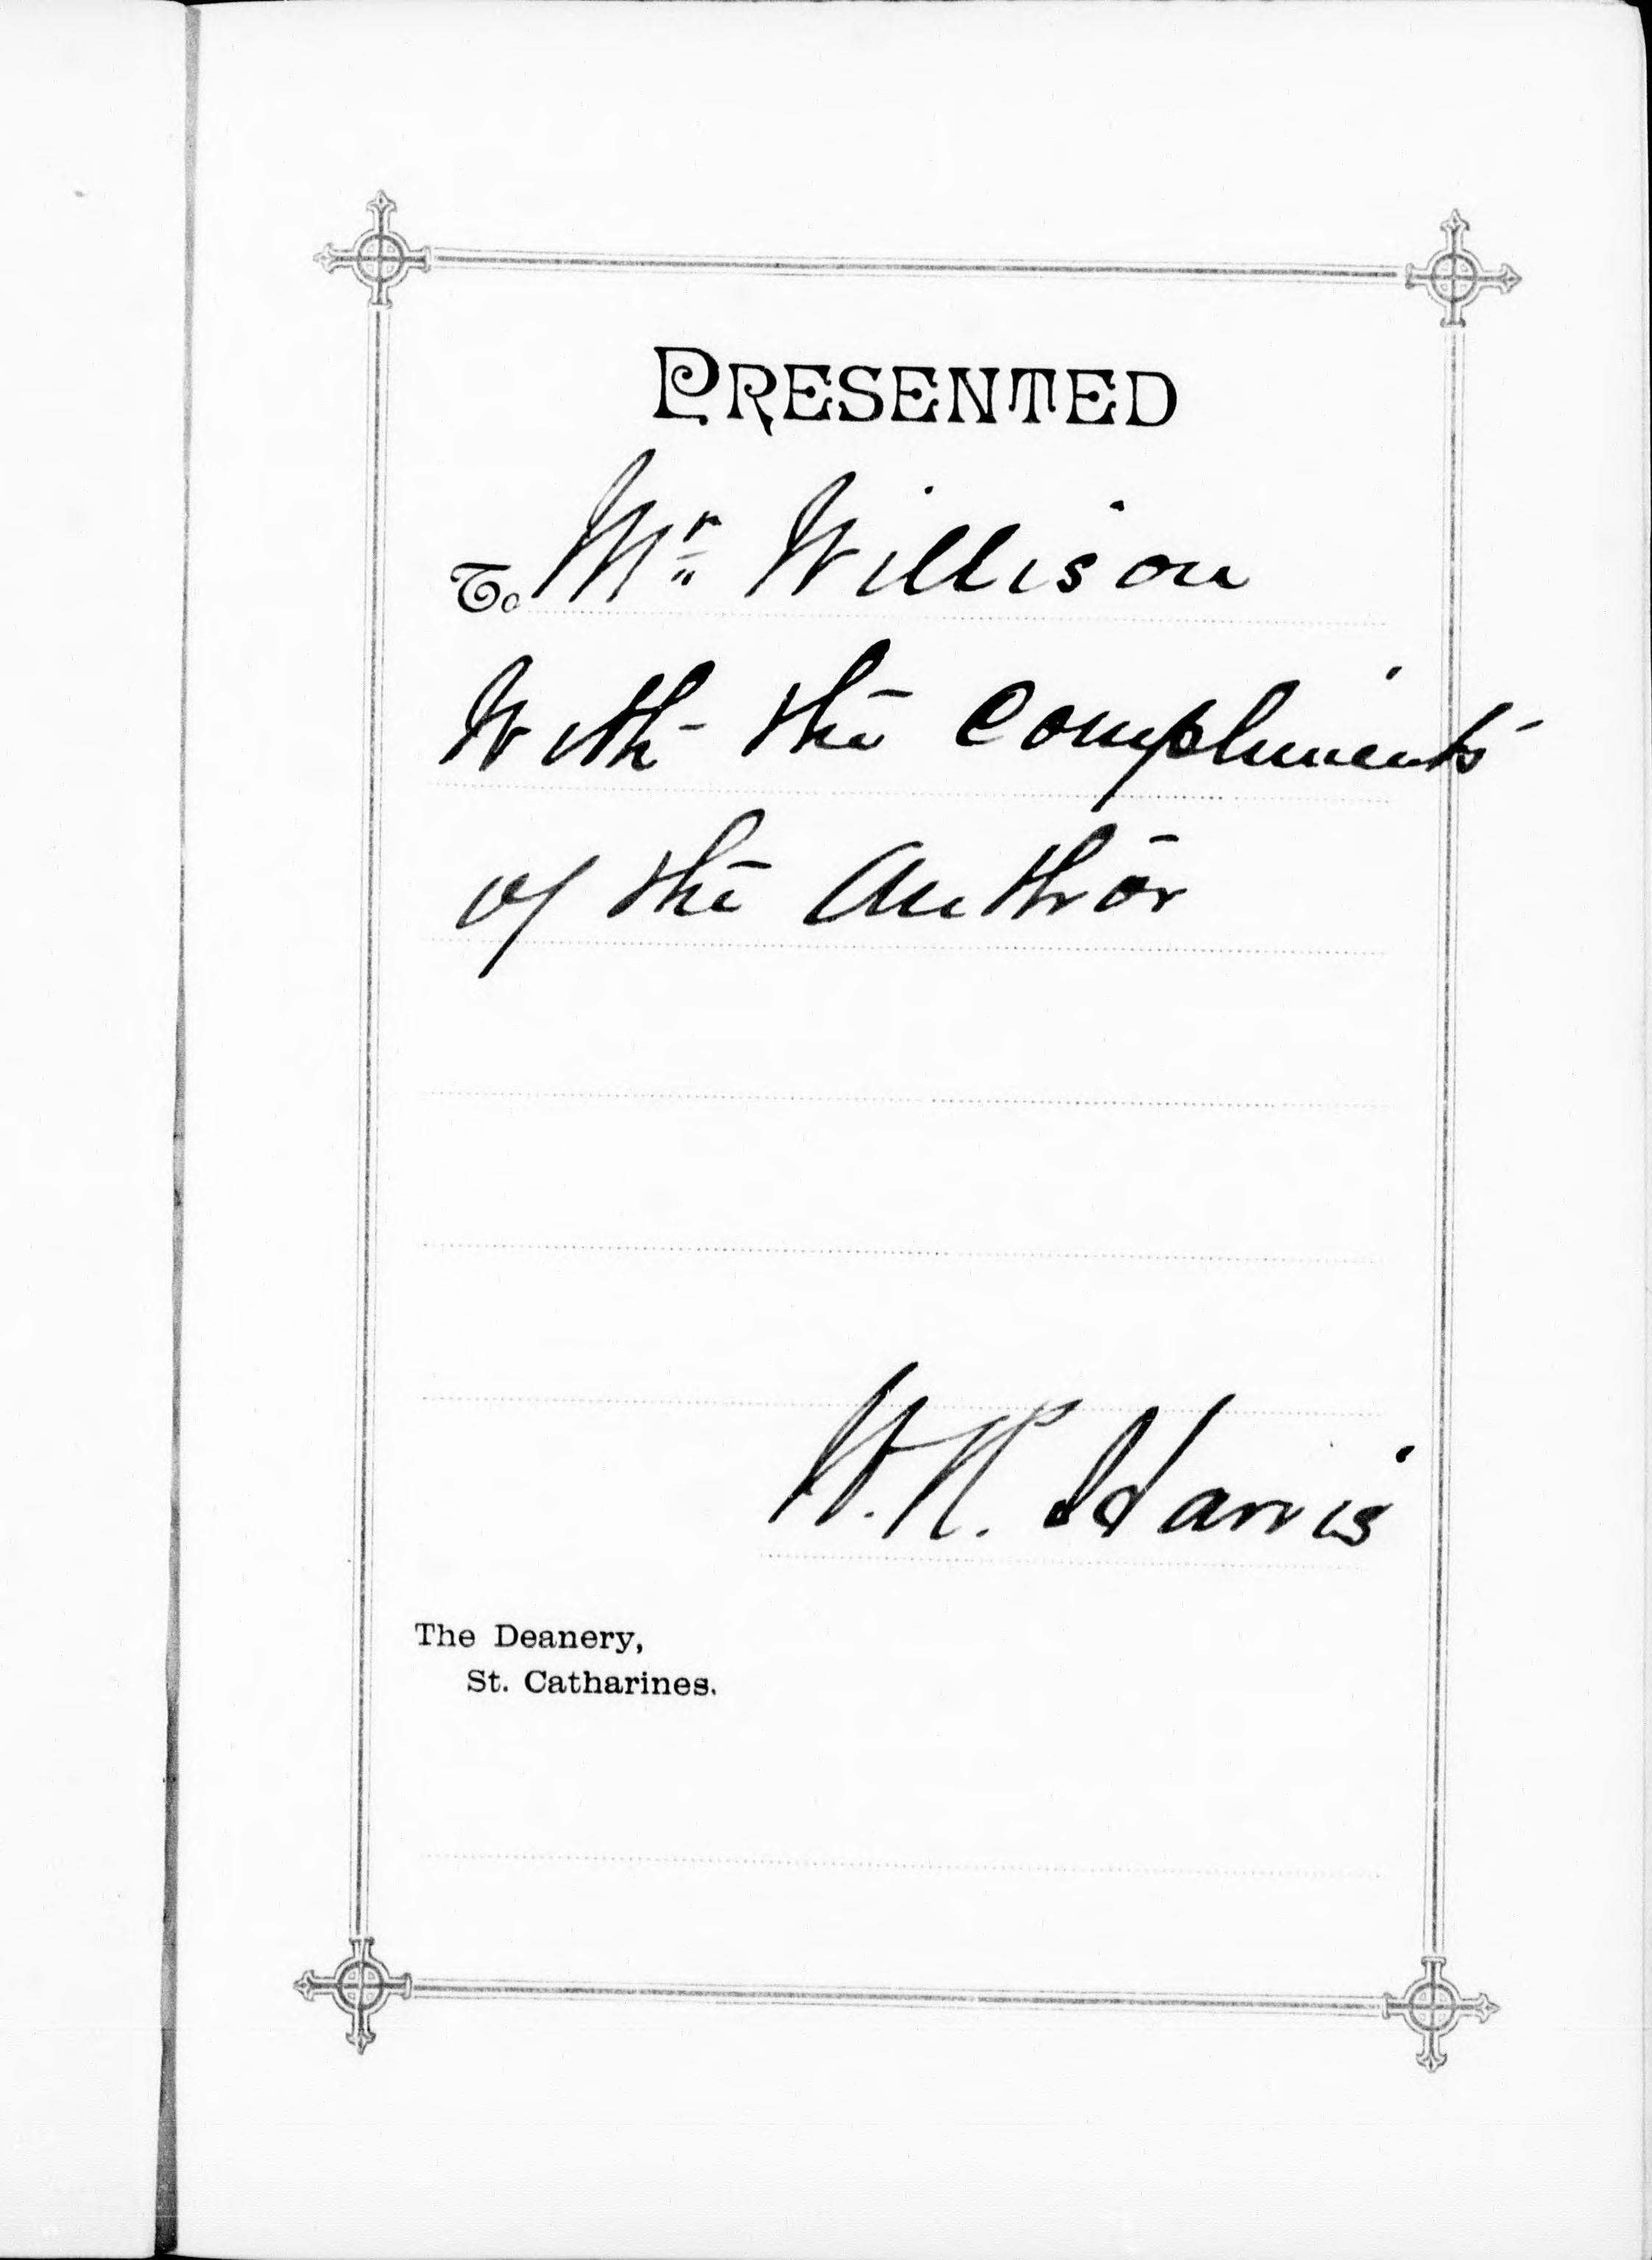 PRESENTED
To Mr. Willison
With the compliments
of the Author
W. R. Harris
The Deanery,
St. Catharines.